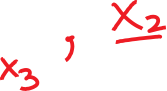 x₃ , x₂